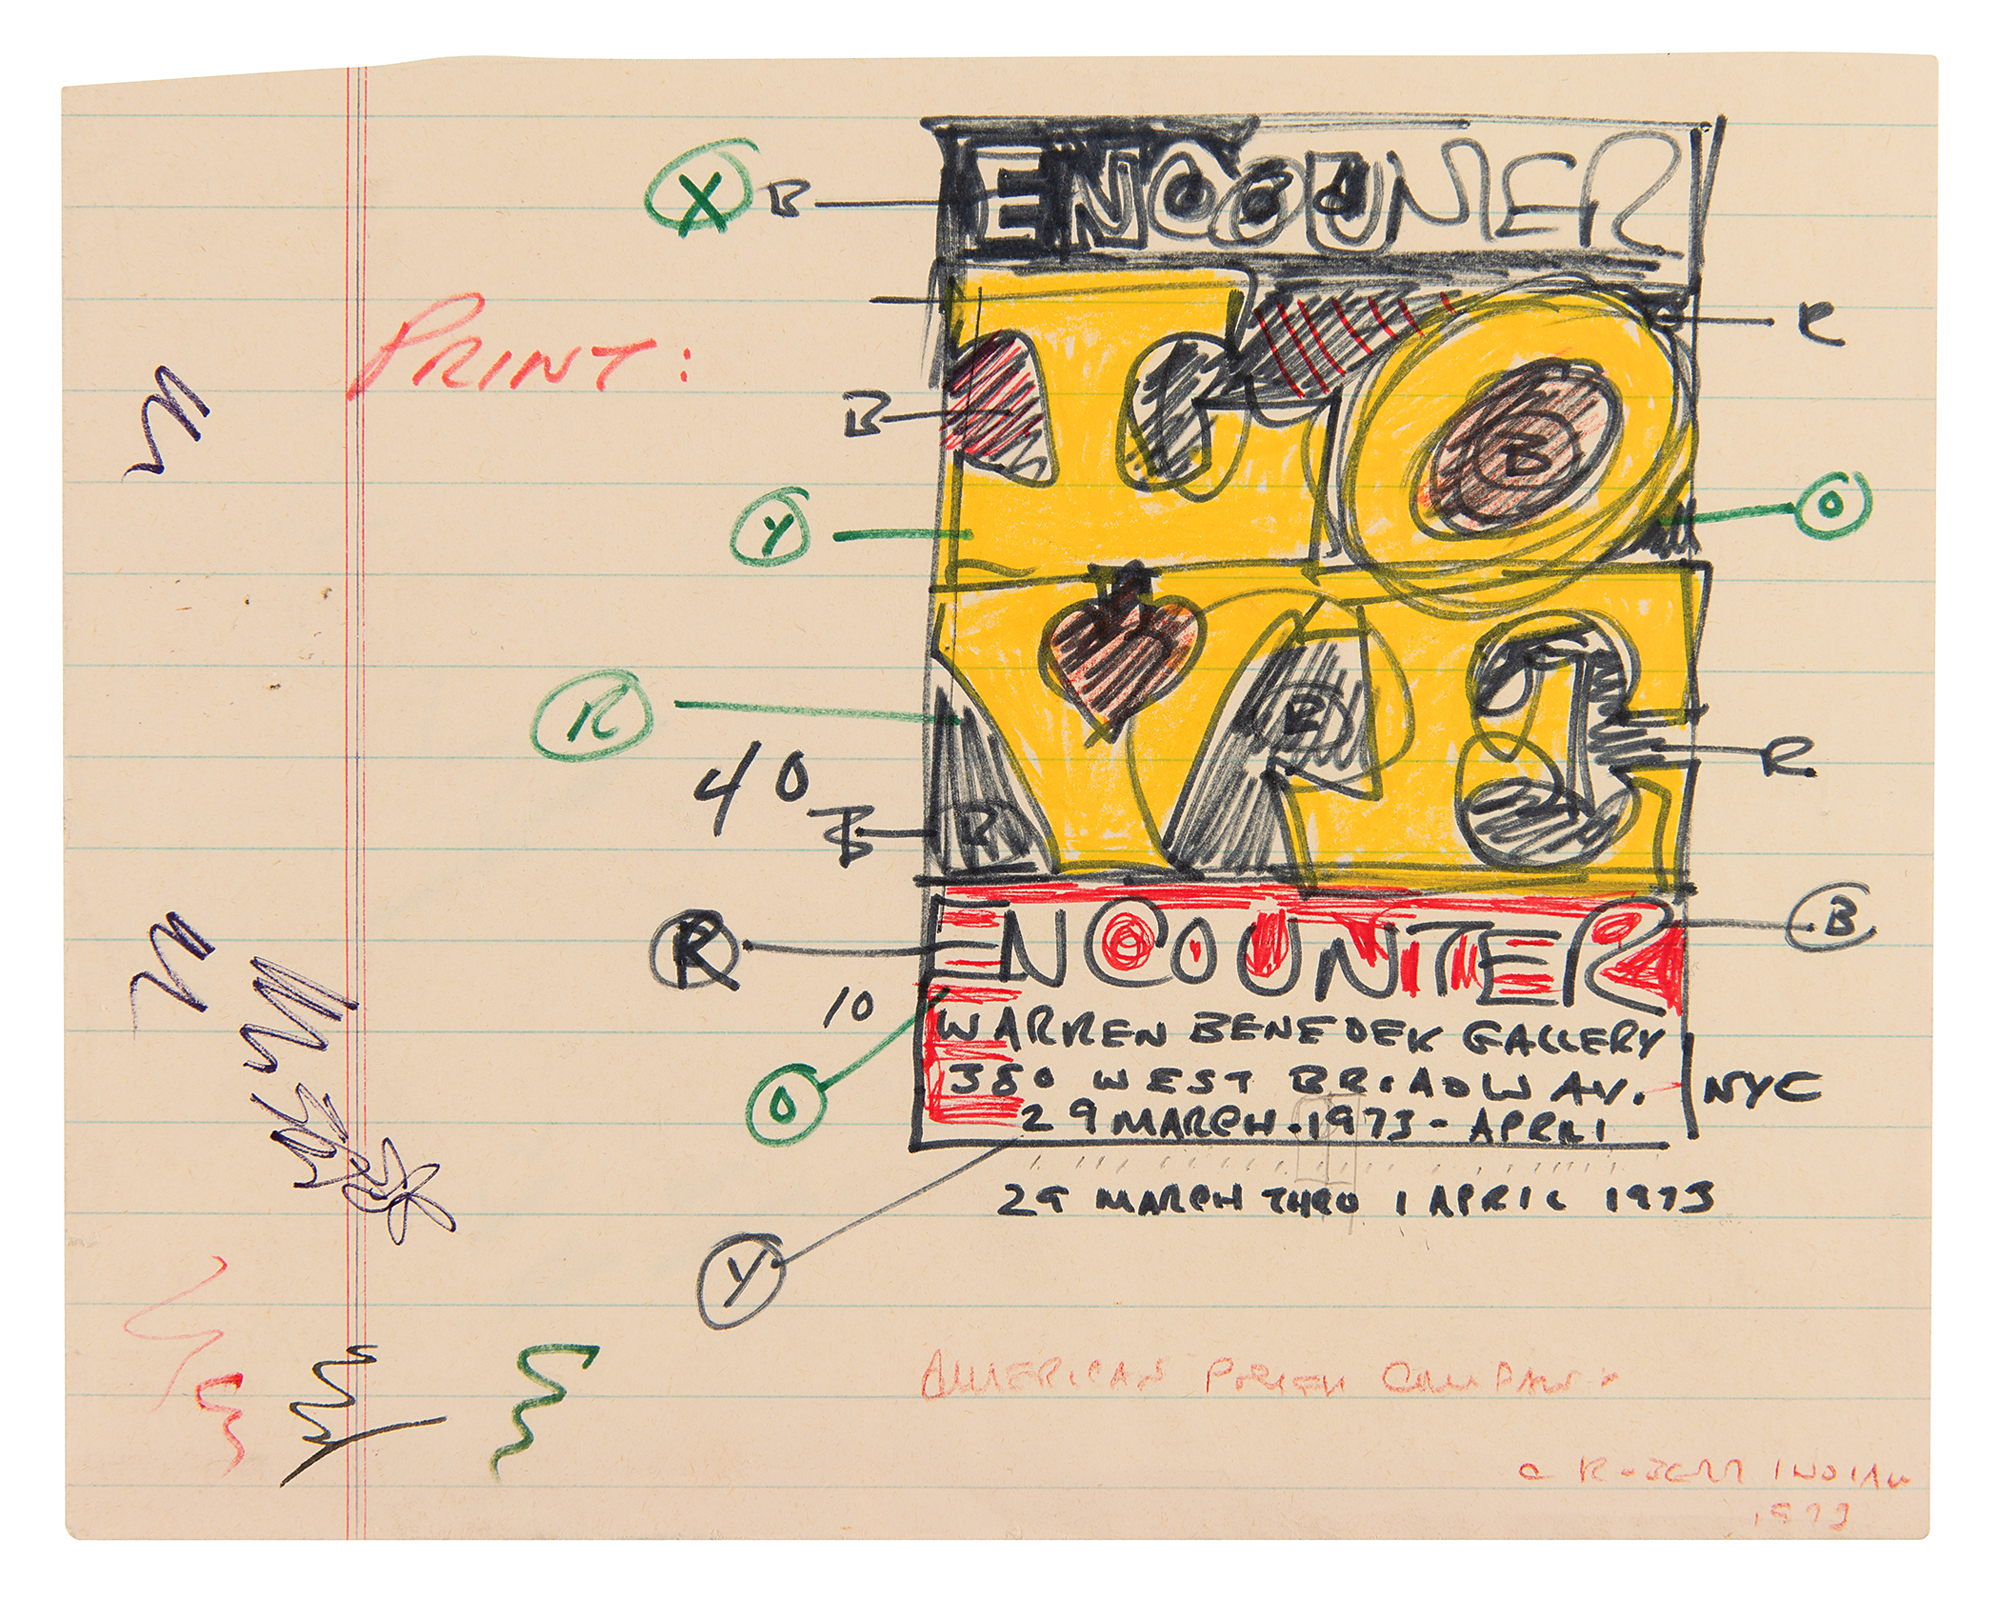 ENCOUNER
X B
PRINT:
R
B
B
Y
O
R
B
40
R
B
R
R
ENCOUNTER
B
10
WARREN BENEDEK GALLERY
380 WEST BROADWAY. NYC
O
29 MARCH.1973-APRIL
29 MARCH THRO 1 APRIL 1973
Y
AMERICAN POSTER COMPANY
© ROBERT INDIANA
1973